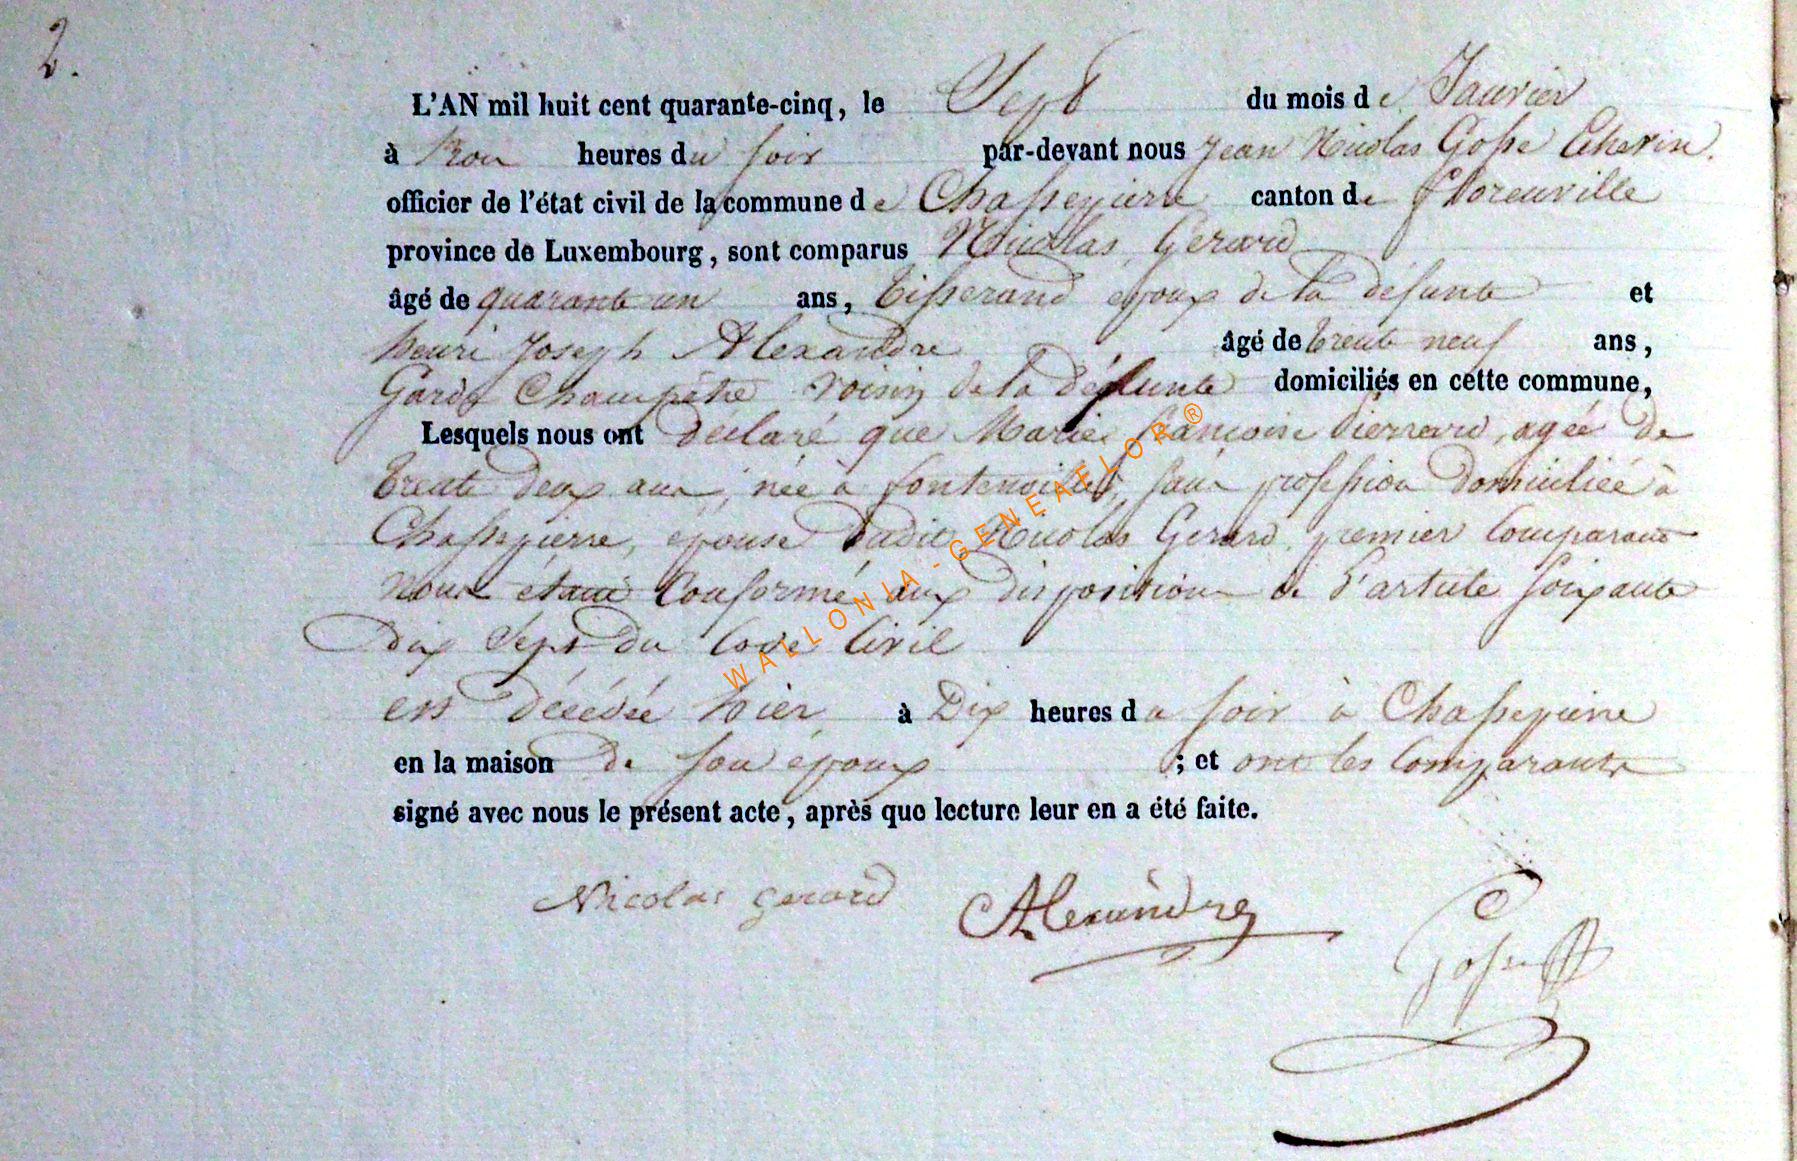 2.
L'AN mil huit cent quarante-cinq, le Sept du mois de Janvier
à trois heures du soir par-devant nous Jean Nicolas Gosse Echevin.
officier de l'état civil de la commune de Chassepierre canton de Florenville
province de Luxembourg, sont comparus Nicolas Gerard
âgé de quarante un ans, tisserand epoux de la défunte et
henri Joseph Alexandre âgé de trente neuf ans,
Garde Champêtre voisin de la défunte domiciliés en cette commune,
Lesquels nous ont declaré que Marie françoise Pierrard, agée de
trente deux ans, née à fontenoille, sans profession domiciliée à
Chassepierre, épouse dudit Nicolas Gerard premier comparant
nous étant conformé aux dispositions de l'article soixante
dix sept du Code Civil
est décédée hier à Dix heures du soir à Chassepierre
en la maison de son époux ; et ont les comparants
signé avec nous le présent acte, après que lecture leur en a été faite.
Nicolas gerard Alexandre Gosse
WALLONIA-GENEAFLOR®